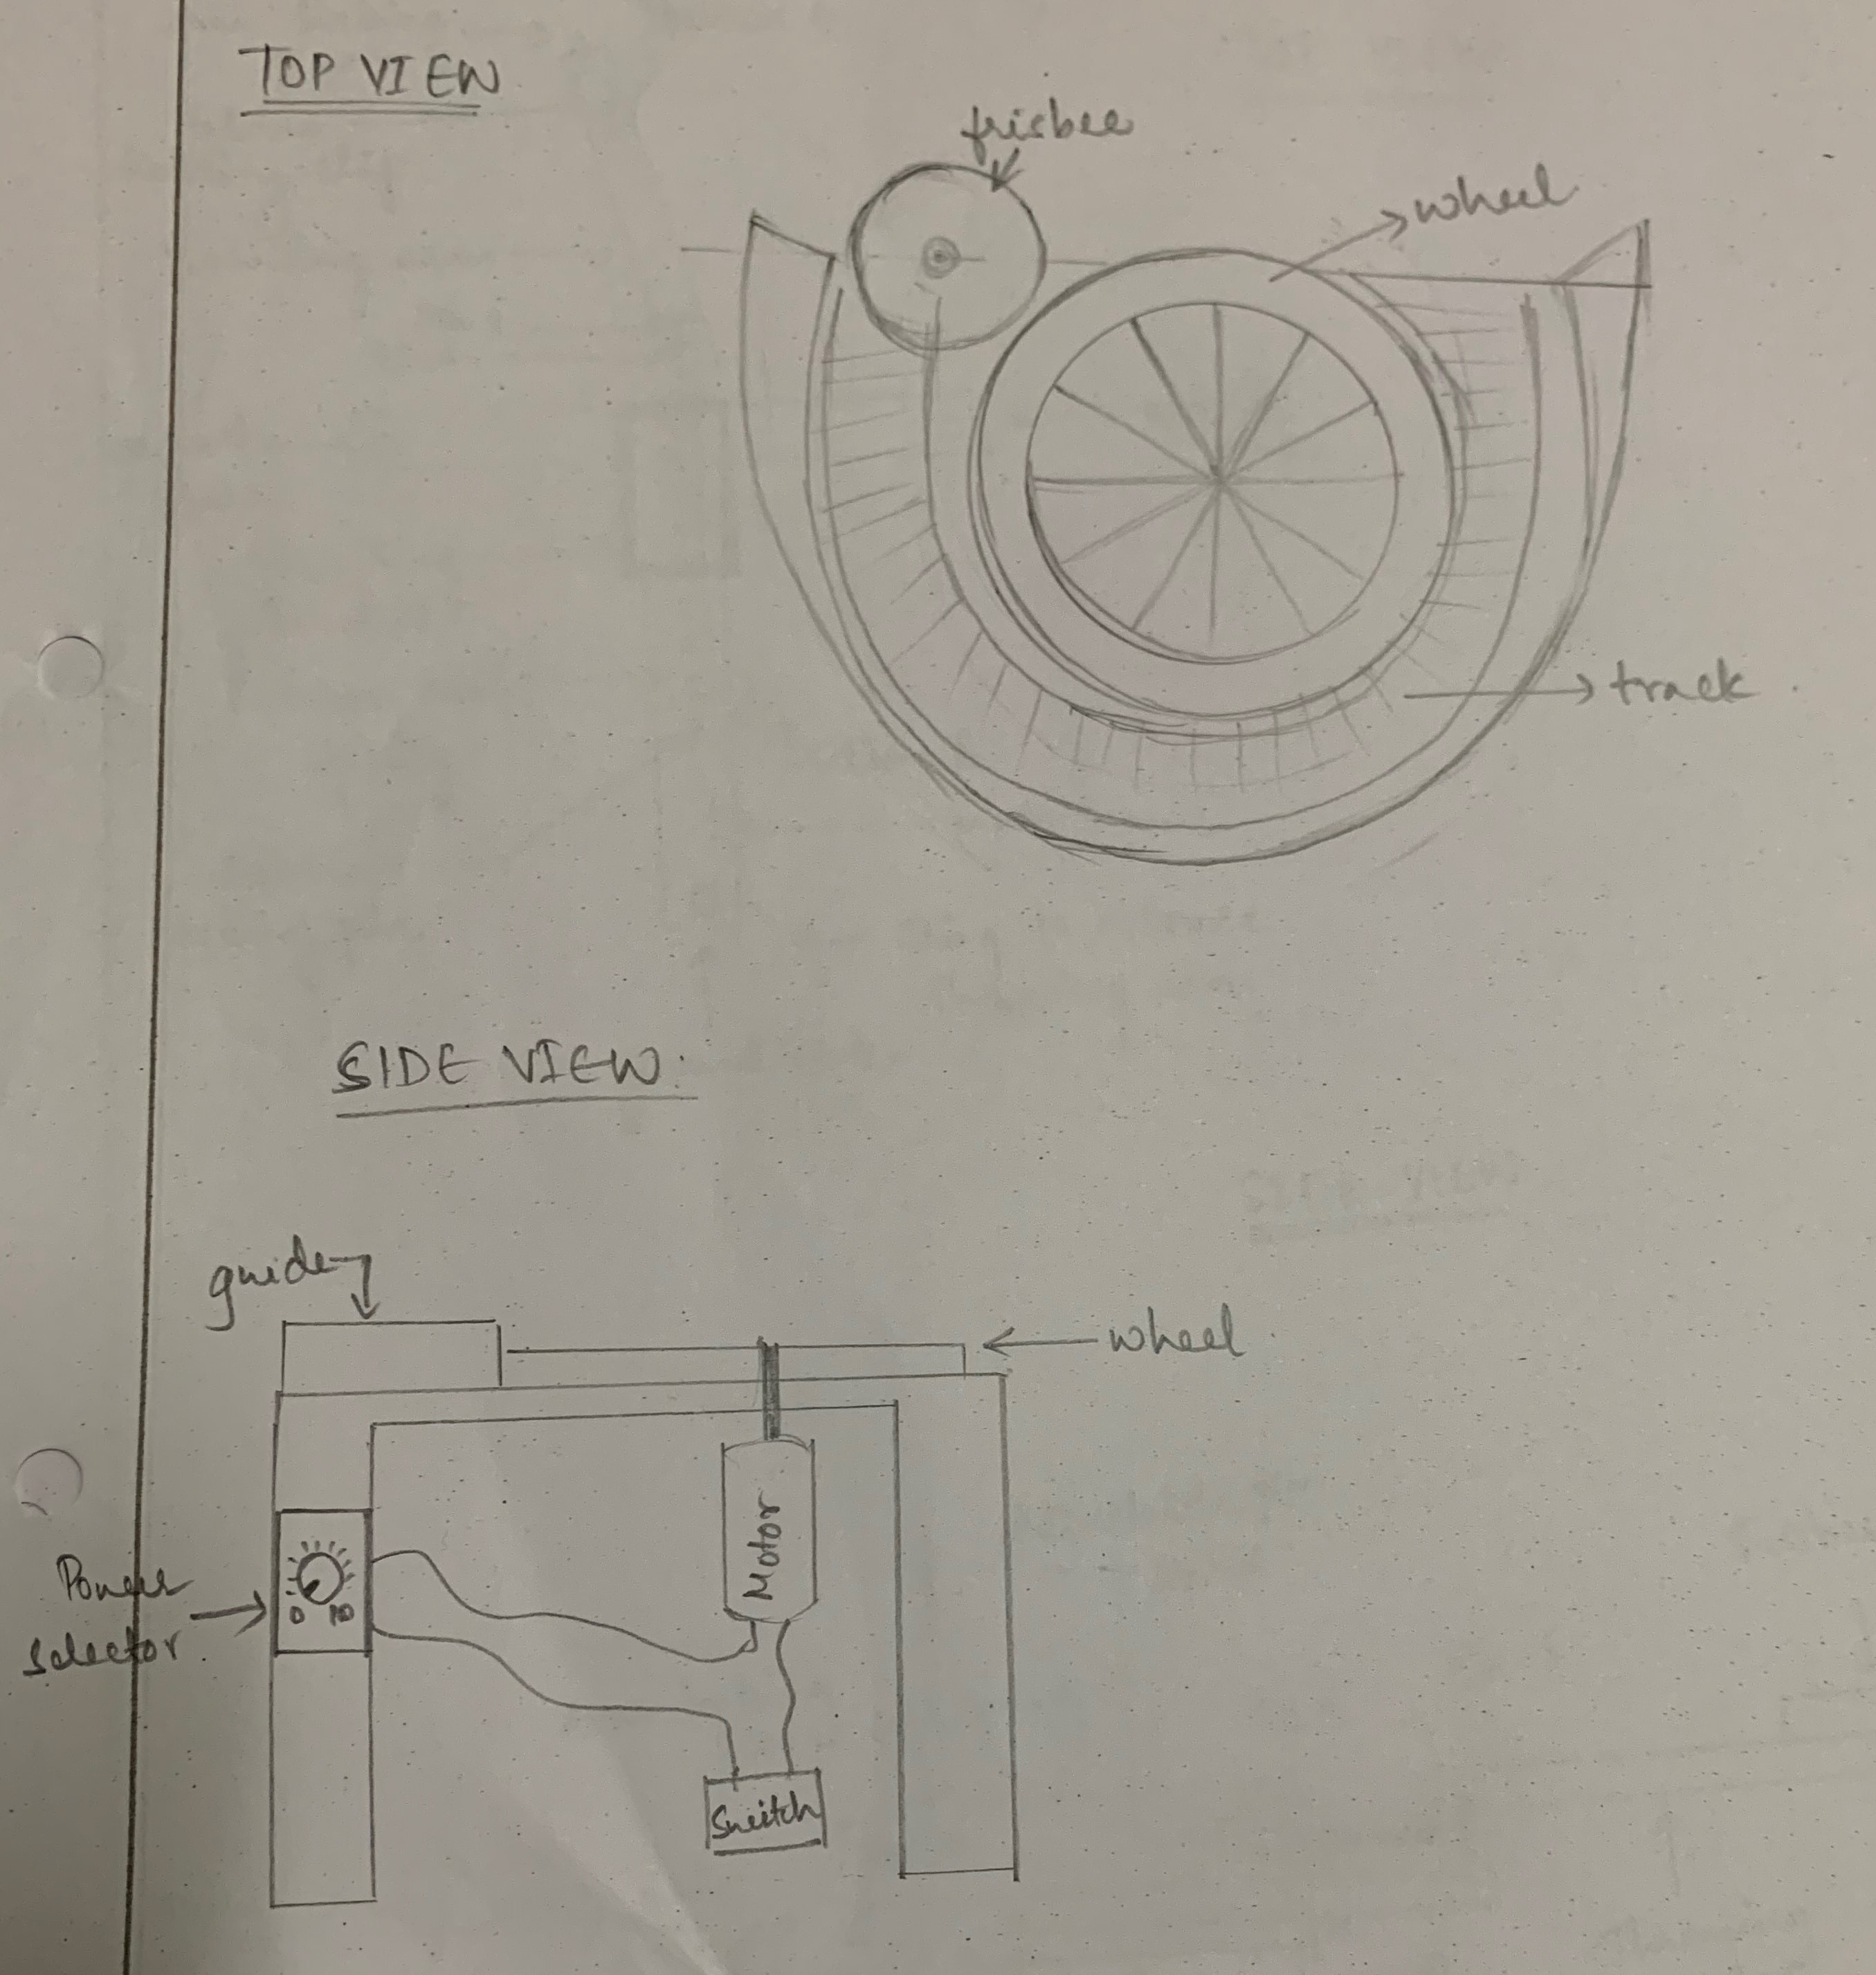 TOP VIEW
frisbee
wheel
track
SIDE VIEW
guide
wheel
Motor
Power
selector
0 10
Switch